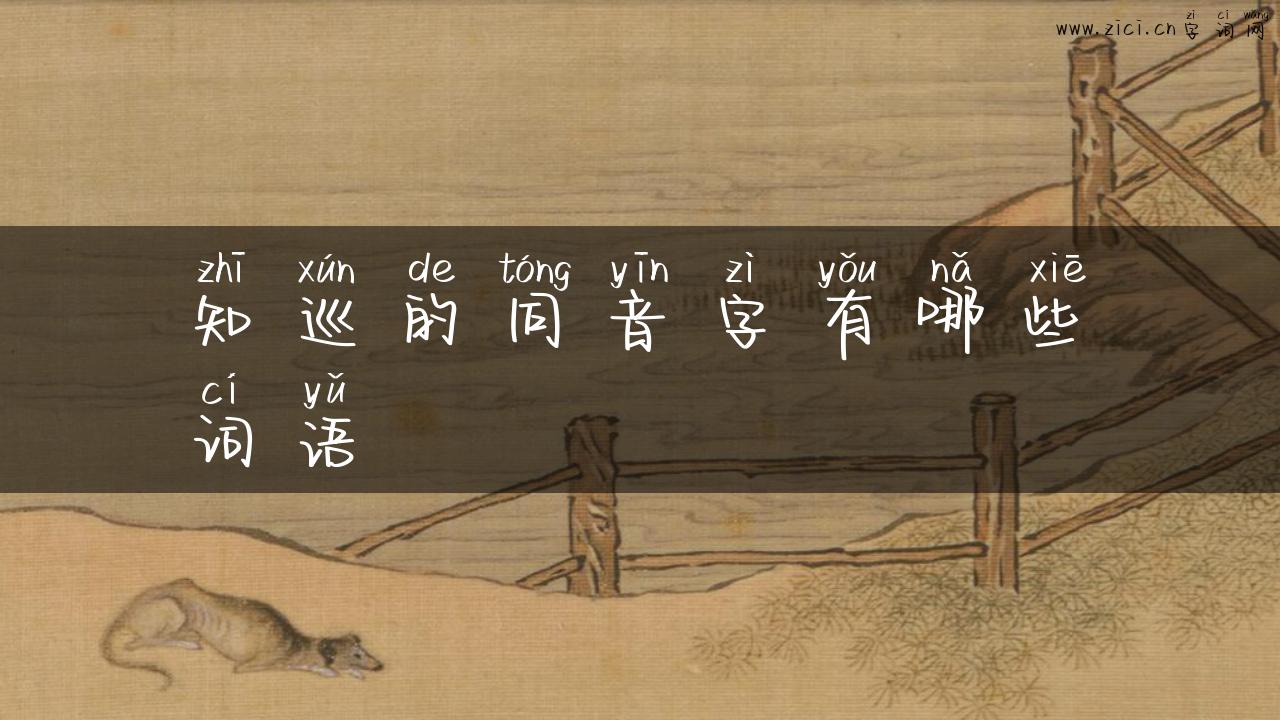 zì cí wǎng
www.zici.cn 字词网
zhī xún de tóng yīn zì yǒu nǎ xiē
知巡的同音字有哪些
cí yǔ
词语